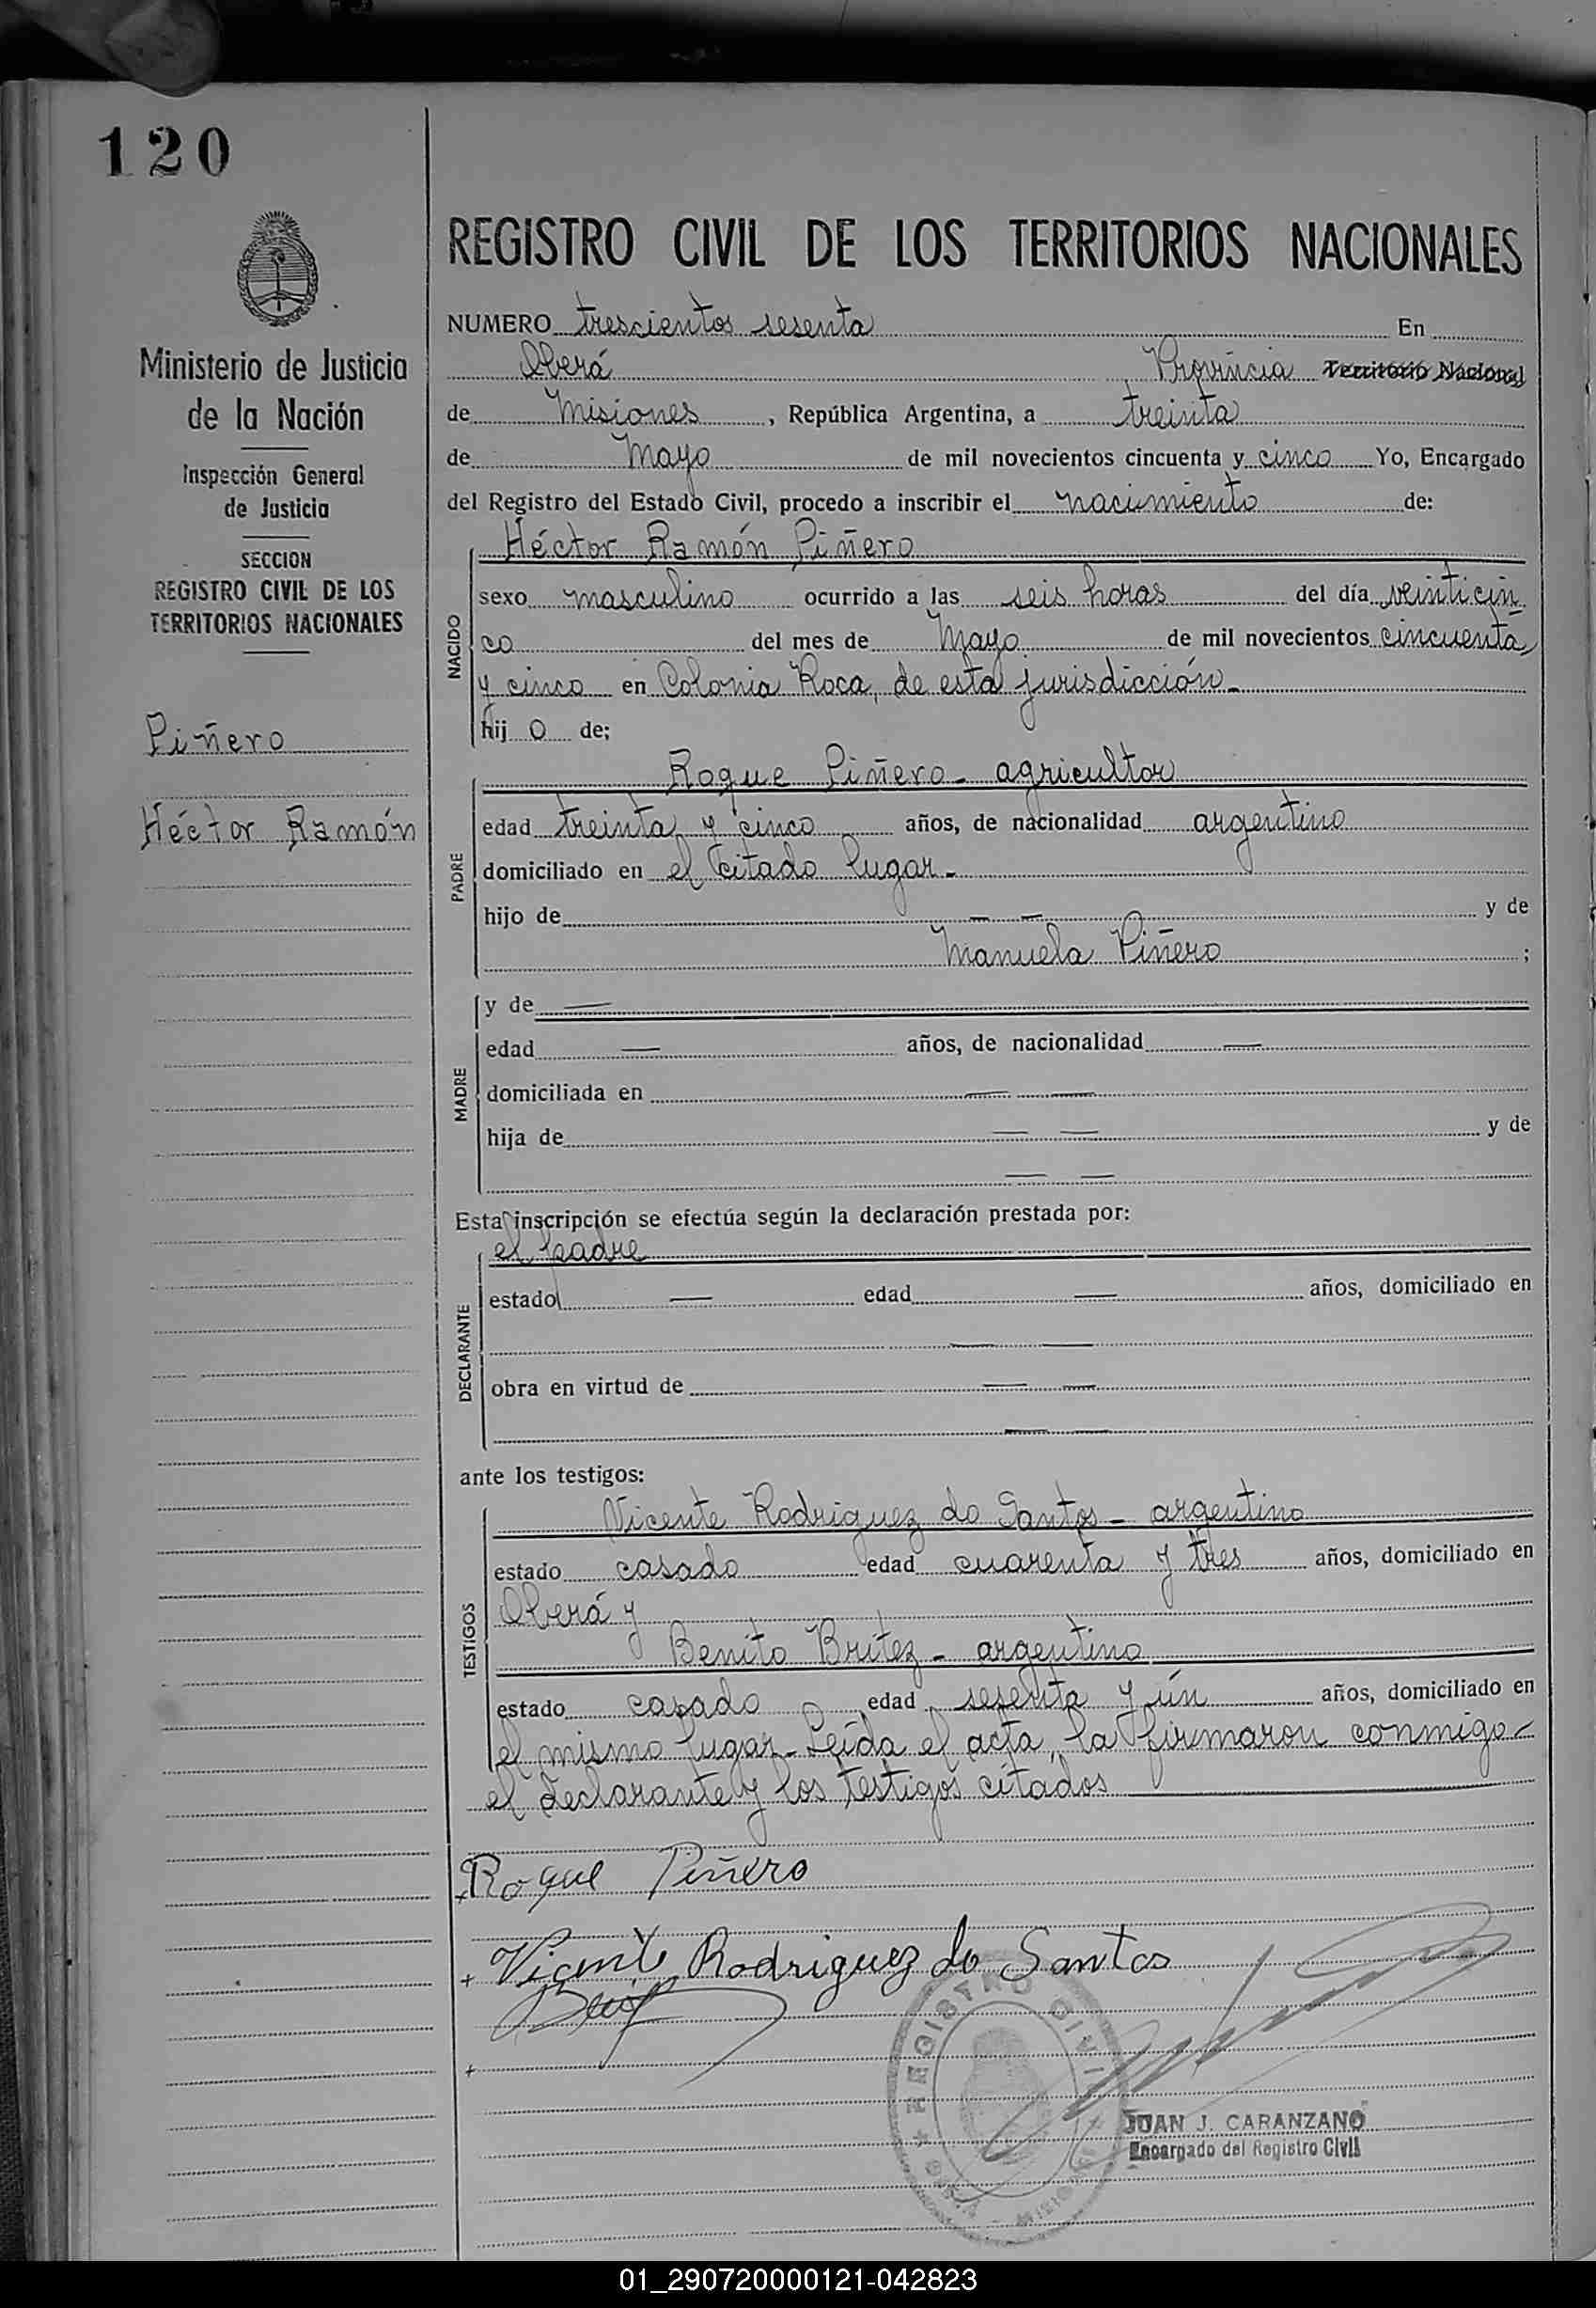 120
Ministerio de Justicia
de la Nación
Inspección General
de Justicia
SECCION
REGISTRO CIVIL DE LOS
TERRITORIOS NACIONALES
Piñero
Héctor Ramón
REGISTRO CIVIL DE LOS TERRITORIOS NACIONALES
NUMERO trescientos sesenta En
Oberá Provincia Territorio Nacional
de Misiones, República Argentina, a treinta
de Mayo de mil novecientos cincuenta y cinco Yo, Encargado
del Registro del Estado Civil, procedo a inscribir el nacimiento de:
NACIDO
Héctor Ramón Piñero
sexo masculino ocurrido a las seis horas del día veinticin
co del mes de Mayo de mil novecientos cincuenta
y cinco en Colonia Roca, de esta jurisdicción-
hij o de;
PADRE
Roque Piñero - agricultor
edad treinta y cinco años, de nacionalidad argentino
domiciliado en el citado lugar-
hijo de — — y de
Manuela Piñero ;
MADRE
y de —
edad — años, de nacionalidad —
domiciliada en — —
hija de — — y de
— —
Esta inscripción se efectúa según la declaración prestada por:
DECLARANTE
el padre
estado — edad — años, domiciliado en
— —
obra en virtud de — —
— —
ante los testigos:
TESTIGOS
Vicente Rodriguez do Santos - argentino
estado casado edad cuarenta y tres años, domiciliado en
Oberá y
Benito Britez - argentino
estado casado edad sesenta y ún años, domiciliado en
el mismo lugar- Leída el acta, la firmaron conmigo-
el declarante y los testigos citados
Roque Piñero
Vicente Rodriguez do Santos
REGISTRO CIVIL
JUAN J. CARANZANO
Encargado del Registro Civil
01_290720000121-042823